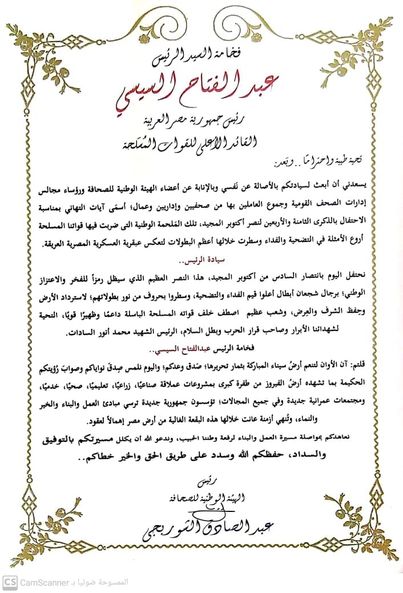 فخامة السيد الرئيس
عبد الفتاح السيسي
رئيس جمهورية مصر العربية
القائد الأعلى للقوات المسلحة
تحية طيبة واحترامًا.. وبعد:
يسعدني أن أبعث لسيادتكم بالأصالة عن نفسي وبالإنابة عن أعضاء الهيئة الوطنية للصحافة ورؤساء مجالس
إدارات الصحف القومية وجموع العاملين بها من صحفيين وإداريين وعمال؛ أسمَى آيات التهاني بمناسبة
الاحتفال بالذكرى الثامنة والأربعين لنصر أكتوبر المجيد، تلك المَلحمة الوطنية التى ضربت فيها قواتنا المسلحة
أروع الأمثلة في التضحية والفداء وسطرت خلالها أعظم البطولات لتعكس عبقرية العسكرية المصرية العريقة.
سيادة الرئيس..
نحتفل اليوم بانتصار السادس من أكتوبر المجيد، هذا النصر العظيم الذي سيظل رمزاً للفخر والاعتزاز
الوطني؛ برجال شجعان أبطال أعلوا قيم الفداء والتضحية، وسطروا بحروف من نور بطولاتهم؛ لاسترداد الأرض
وحفظ الشرف والعِرض، وشعب عظيم اصطف خلف قواته المسلحة الباسلة داعمًا وظهيرًا قويًا، التحية
لشهدائنا الأبرار وصاحب قرار الحرب وبطل السلام، الرئيس الشهيد محمد أنور السادات.
فخامة الرئيس عبدالفتاح السيسي..
قلتم: آن الأوان لتنعم أرضُ سيناء المباركة بثمار تحريرها؛ صَدق وعدكم؛ واليوم نلمس صِدقَ نواياكم وصوابَ رؤيتكم
الحكيمة بما تشهده أرضُ الفيروز من طفرة كبرى بمشروعات عملاقة صناعيًا، زراعيًا، تعليميًا، صحيًا، خدميًا،
ومجتمعات عمرانية جديدة وفي جميع المجالات؛ تؤسسون جمهورية جديدة ترسي مبادئ العمل والبناء والخير
والنماء، وتُنهي أزمنة عانت خلالها هذه البقعة الغالية من أرض مصر إهمالاً لعقود.
نعاهدكم بمواصلة مسيرة العمل والبناء لرفعة وطننا الحبيب، وندعو الله أن يكلل مسيرتكم بالتوفيق
والسداد، حفظكم الله وسدد على طريق الحق والخير خطاكم..
رئيس
الهيئة الوطنية للصحافة
عبد الصادق الشوربجي
CS CamScanner الممسوحة ضوئيا بـ